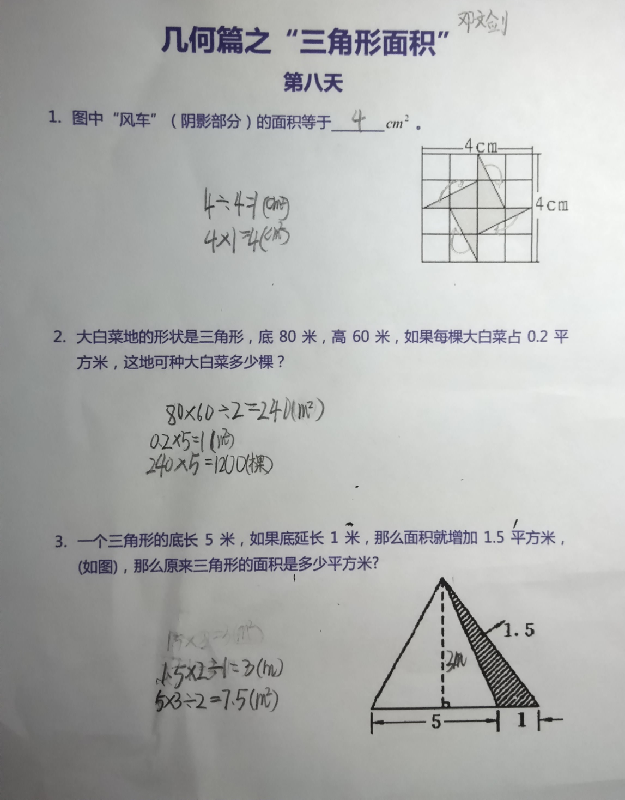 邓文剑
几何篇之“三角形面积”
第八天
1. 图中“风车”（阴影部分）的面积等于 4 cm²。
4cm
4cm
4÷4=1(cm²)
4×1=4(cm²)
2. 大白菜地的形状是三角形，底 80 米，高 60 米，如果每棵大白菜占 0.2 平
方米，这地可种大白菜多少棵？
80×60÷2=240(m²)
0.2×5=1(m²)
240×5=1200(棵)
3. 一个三角形的底长 5 米，如果底延长 1 米，那么面积就增加 1.5 平方米，
(如图)，那么原来三角形的面积是多少平方米?
1.5×2÷1=3(m)
5×3÷2=7.5(m²)
1.5
3m
5
1